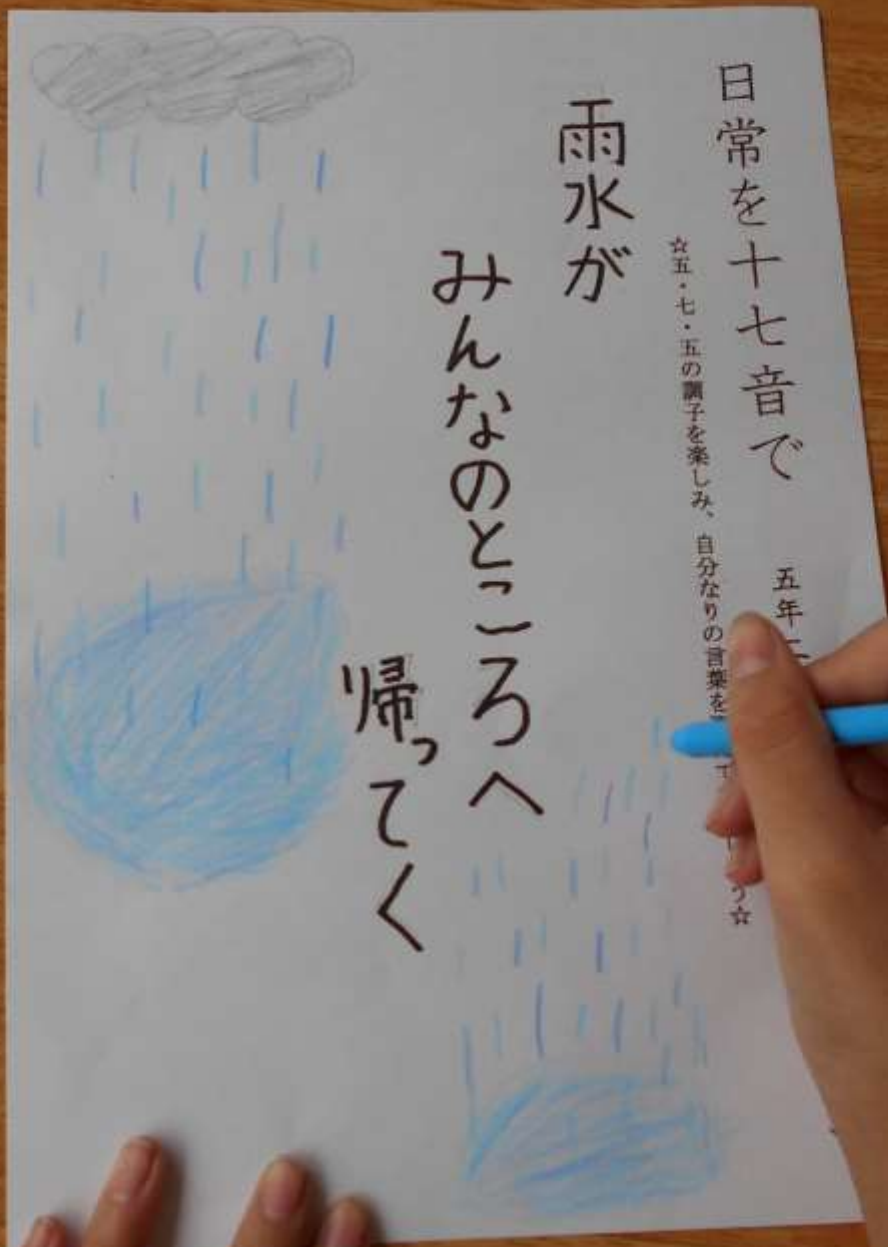 日常を十七音で 五年二
☆五・七・五の調子を楽しみ、自分なりの言葉を
雨水が
みんなのところへ
帰ってく